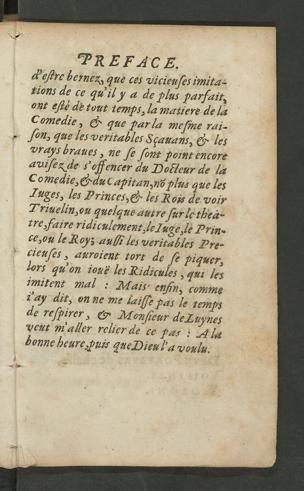 PREFACE.
d'estre bernez, que ces vicieuses imita-
tions de ce qu'il y a de plus parfait,
ont esté de tout temps, la matiere de la
Comedie, & que par la mesme rai-
son, que les veritables Sçauans, & les
vrays braues, ne se sont point encore
avisez de s'offencer du Docteur de la
Comedie, & du Capitan, nõ plus que les
Iuges, les Princes, & les Rois de voir
Triuelin, ou quelque autre sur le thea-
tre, faire ridiculement, le Iuge, le Prin-
ce, ou le Roy; aussi les veritables Pre-
cieuses, auroient tort de se piquer,
lors qu'on iouë les Ridicules, qui les
imitent mal : Mais enfin, comme
i'ay dit, on ne me laisse pas le temps
de respirer, & Monsieur de Luynes
veut m'aller relier de ce pas : A la
bonne heure, puis que Dieu l'a voulu.